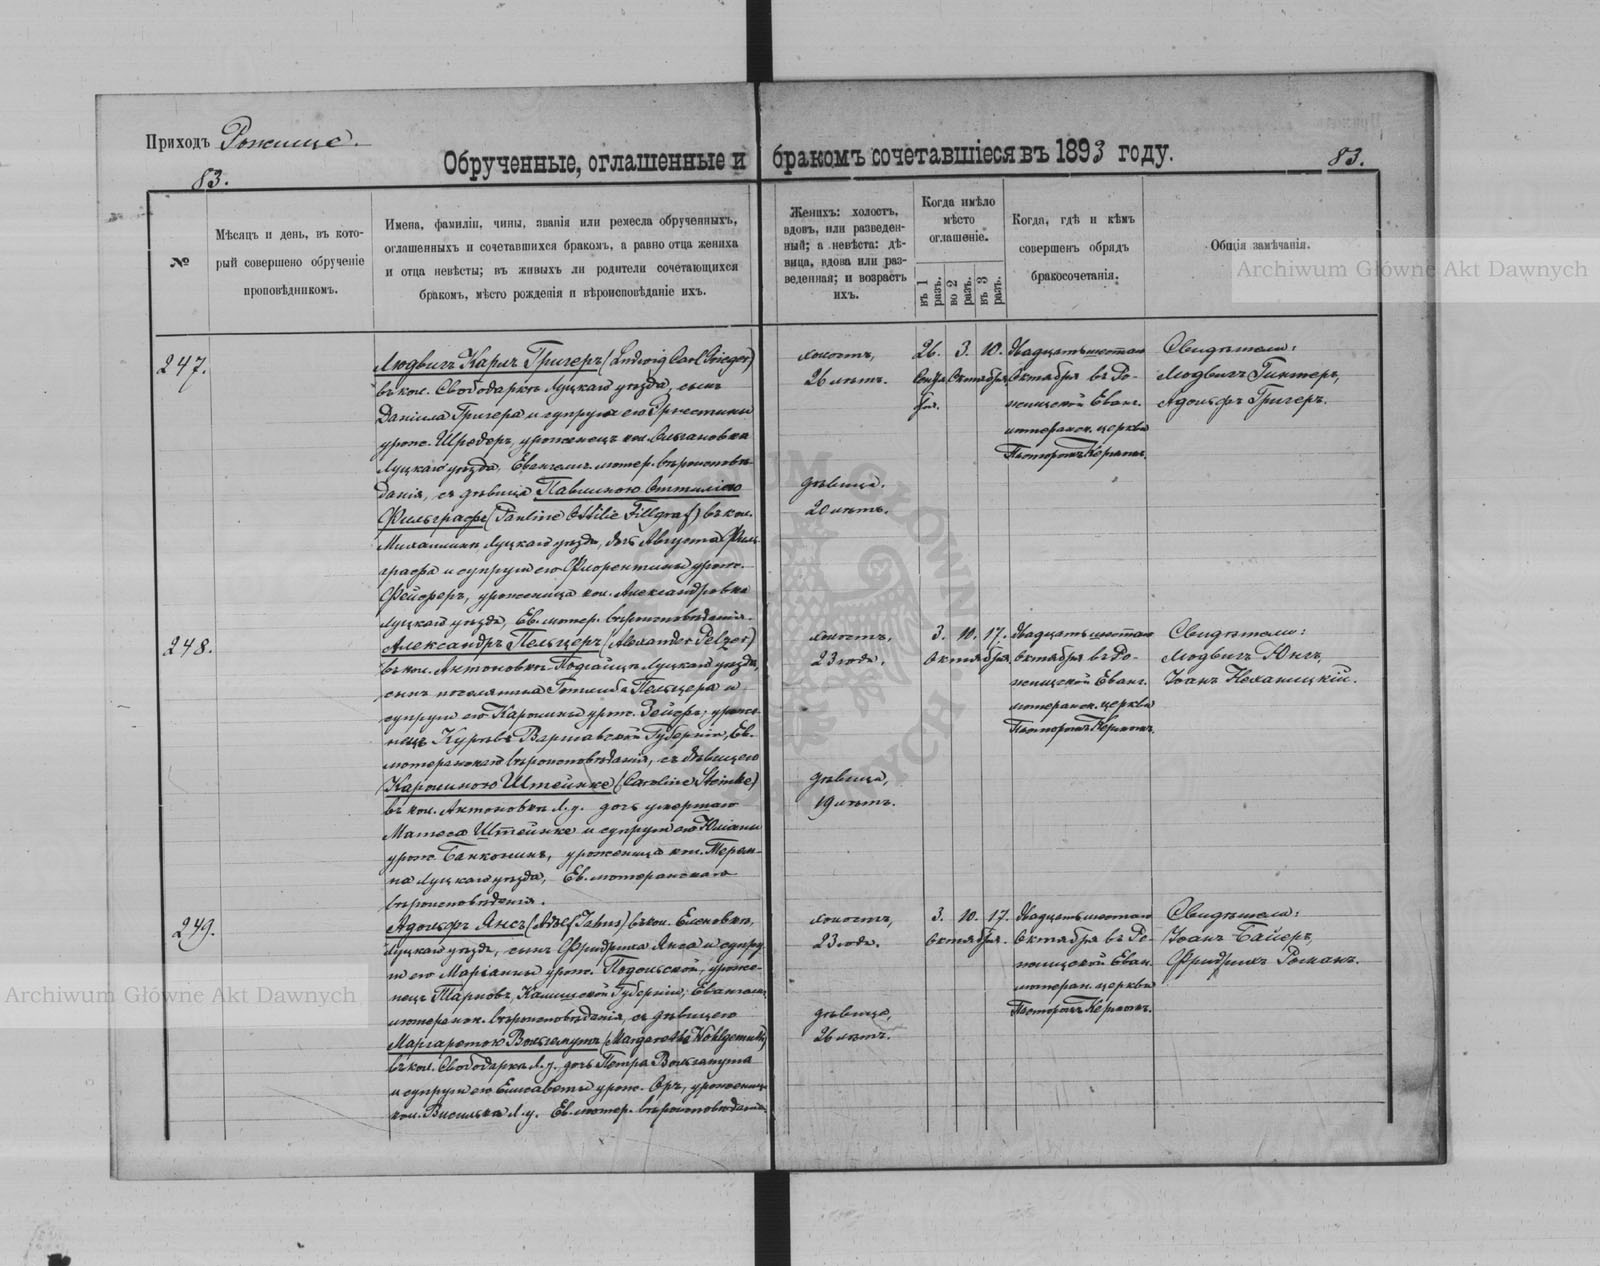 Приходъ Рожище.
Обрученные, оглашенные и бракомъ сочетавшіеся въ 1893 году.
83.
83.
№
Мѣсяцъ и день, въ кото-
рый совершено обрученіе
проповѣдникомъ.
Имена, фамиліи, чины, званія или ремесла обрученныхъ,
оглашенныхъ и сочетавшихся бракомъ, а равно отца жениха
и отца невѣсты; въ живыхъ ли родители сочетающихся
бракомъ, мѣсто рожденія и вѣроисповѣданіе ихъ.
Женихъ: холостъ,
вдовъ, или разведен-
ный; а невѣста: дѣ-
вица, вдова или раз-
веденная; и возрастъ
ихъ.
Когда имѣло
мѣсто
оглашеніе.
въ 1 разъ.
во 2 разъ.
въ 3 разъ.
Когда, гдѣ и кѣмъ
совершенъ обрядъ
бракосочетанія.
Общія замѣчанія.
Archiwum Główne Akt Dawnych
247.
Людвигъ Карлъ Григеръ (Ludwig Carl Grieger)
въ кол. Свободаркѣ Луцкаго уѣзда, сынъ
Даніила Григера и супруги его Эрнестины
урож. Шредеръ, уроженецъ кол.
Луцкаго уѣзда, Евангелич. лютер. вѣроисповѣ-
данія, съ дѣвицею Павлиною Оттиліею
Фильграфъ (Pauline Ottilie Fillgraf) въ кол.
Михалинѣ Луцкаго уѣзда, дочь Августа Филь-
графа и супруги его Флорентины урож.
Фейферъ, уроженица кол. Александровки
Луцкаго уѣзда, Ев. лютер. вѣроисповѣданія.
холостъ,
26 лѣтъ.
дѣвица.
20 лѣтъ.
26. 3. 10.
Сентя Октября
бря.
Двадцать шестаго
Октября въ Ро-
жищской Еванг.
лютеранск. церкви
Пасторомъ Кермъ.
Свидѣтели:
Людвигъ Гинтеръ,
Адольфъ Григеръ.
248.
Александръ Пельцеръ (Alexander Pelzer)
въ кол. Антоновкѣ Подгайцы Луцкаго уѣзда,
сынъ поселянина Готлиба Пельцера и
супруги его Каролины урож. Зейфъ, уроже-
нецъ Варшавской Губерніи, Ев.
лютеранскаго вѣроисповѣданія, съ дѣвицею
Каролиною Штейнке (Caroline Steinke)
въ кол. Антоновкѣ Л. у. дочь умершаго
Матеса Штейнке и супруги его Юліаны
урож. уроженица кол. Терем-
на Луцкаго уѣзда, Ев. лютеранскаго
вѣроисповѣданія.
холостъ,
23 года.
дѣвица,
19 лѣтъ.
3. 10. 17.
Октября.
Двадцать шестаго
Октября въ Ро-
жищской Еванг.
лютеранск. церкви
Пасторомъ Кермъ.
Свидѣтели:
Людвигъ Юнгъ,
Іоанъ Неханицкій.
249.
Адольфъ Янсъ (Adolf Jahns) въ кол. Еленовкѣ,
Луцкаго уѣзда, сынъ Фридриха Янса и супру-
ги его Маріанны урож. Подольской, уроже-
нецъ Тарновъ, Калишской Губерніи, Евангели.
лютеранск. вѣроисповѣданія, съ дѣвицею
Маргаретою Вольгемутъ (Margarethe Wohlgemuth)
въ кол. Свободарка Л. у. дочь Петра Вольгемута
и супруги его Елисаветы урож. Оръ, уроженица
кол. Л. у. Ев. лютер. вѣроисповѣданія.
холостъ,
23 года.
дѣвица,
26 лѣтъ.
3. 10. 17.
Октября.
Двадцать шестаго
Октября въ Ро-
жищской Еван.
лютеран. церкви
Пасторомъ Кермъ.
Свидѣтели:
Іоанъ Байеръ,
Фридрихъ Романъ.
Archiwum Główne Akt Dawnych